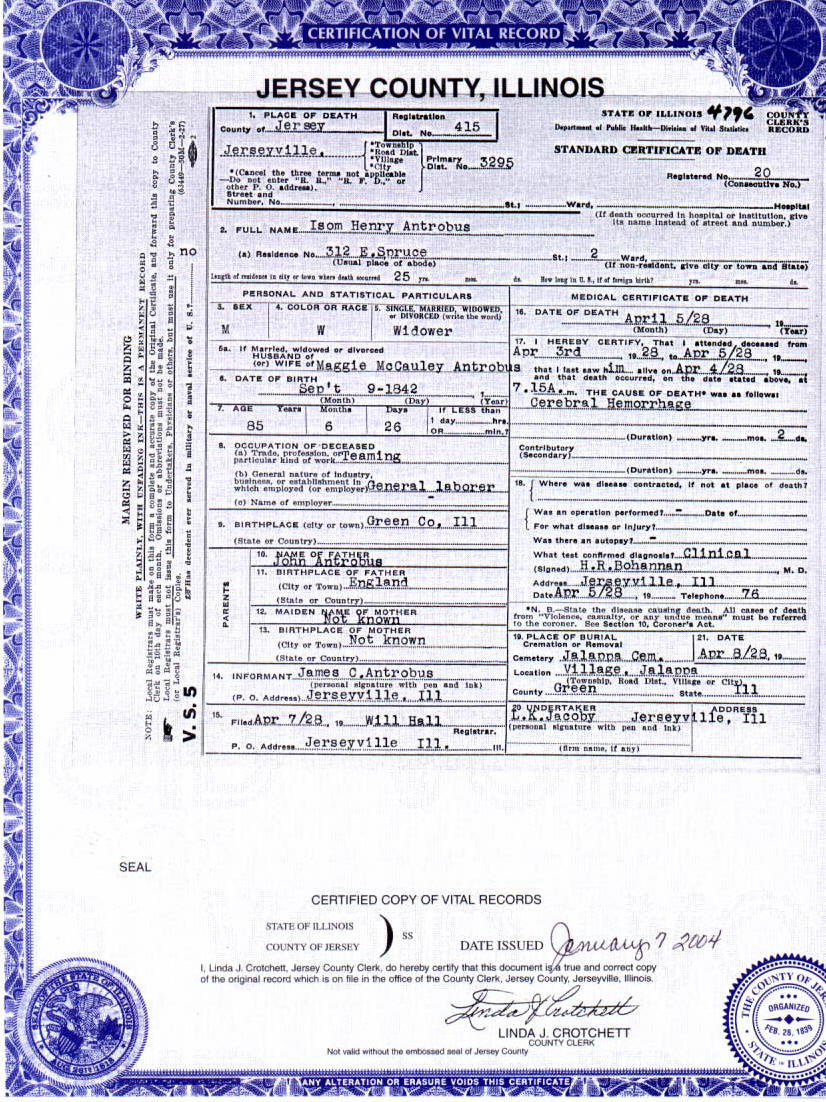 CERTIFICATION OF VITAL RECORD
JERSEY COUNTY, ILLINOIS
1. PLACE OF DEATH
County of Jersey
Registration
Dist. No. 415
STATE OF ILLINOIS 4796 COUNTY CLERK'S RECORD
Department of Public Health—Division of Vital Statistics
Jerseyville.
*Township
*Road Dist.
*Village
*City
Primary
Dist. No. 3295
STANDARD CERTIFICATE OF DEATH
*(Cancel the three terms not applicable
—Do not enter "R. R.," "R. F. D.," or
other P. O. address).
Registered No. 20
(Consecutive No.)
Street and
Number, No. St.; Ward, Hospital
(If death occurred in hospital or institution, give
its name instead of street and number.)
2. FULL NAME Isom Henry Antrobus
(a) Residence No. 312 E.Spruce St.; 2 Ward,
(Usual place of abode) (If non-resident, give city or town and State)
Length of residence in city or town where death occurred 25 yrs. mos. ds. How long in U. S., if of foreign birth? yrs. mos. ds.
PERSONAL AND STATISTICAL PARTICULARS
3. SEX 4. COLOR OR RACE 5. SINGLE, MARRIED, WIDOWED,
or DIVORCED (write the word)
M W Widower
5a. If Married, widowed or divorced
HUSBAND of
(or) WIFE of Maggie McCauley Antrobus
6. DATE OF BIRTH
Sep't 9-1842
(Month) (Day) (Year)
7. AGE Years Months Days If LESS than
1 day hrs.
OR min.?
85 6 26
8. OCCUPATION OF DECEASED
(a) Trade, profession, or
particular kind of work Teaming
(b) General nature of industry,
business, or establishment in
which employed (or employer) General laborer
(c) Name of employer -
9. BIRTHPLACE (city or town) Green Co, Ill
(State or Country)
PARENTS
10. NAME OF FATHER
John Antrobus
11. BIRTHPLACE OF FATHER
(City or Town) England
(State or Country)
12. MAIDEN NAME OF MOTHER
Not known
13. BIRTHPLACE OF MOTHER
(City or Town) Not known
(State or Country)
14. INFORMANT James C.Antrobus
(personal signature with pen and ink)
(P. O. Address) Jerseyville, Ill
15.
Filed Apr 7/28, 19 Will Hall
Registrar.
P. O. Address Jerseyville Ill. Ill.
MEDICAL CERTIFICATE OF DEATH
16. DATE OF DEATH April 5/28 19
(Month) (Day) (Year)
17. I HEREBY CERTIFY, That I attended deceased from
Apr 3rd 19 28, to Apr 5/28, 19
that I last saw him alive on Apr 4/28 19
and that death occurred, on the date stated above, at
7.15A.m. THE CAUSE OF DEATH* was as follows:
Cerebral Hemorrhage
(Duration) yrs. mos. 2 ds.
Contributory
(Secondary)
(Duration) yrs. mos. ds.
18. Where was disease contracted, if not at place of death?
Was an operation performed? - Date of
For what disease or injury?
Was there an autopsy? -
What test confirmed diagnosis? Clinical
(Signed) H.R.Bohannan, M. D.
Address Jerseyville, Ill
Date Apr 5/28, 19 Telephone 76
*N. B.—State the disease causing death. All cases of death
from "Violence, casualty, or any undue means" must be referred
to the coroner. See Section 10, Coroner's Act.
19. PLACE OF BURIAL
Cremation or Removal
21. DATE
Cemetery Jalappa Cem. Apr 8/28, 19
Location Village, Jalappa
(Township, Road Dist., Village or City)
County Green State Ill
20 UNDERTAKER ADDRESS
L.K.Jacoby Jerseyville, Ill
(personal signature with pen and ink)
(firm name, if any)
MARGIN RESERVED FOR BINDING
WRITE PLAINLY, WITH UNFADING INK—THIS IS A PERMANENT RECORD
NOTE: Local Registrars must make on this form a complete and accurate copy of the Original Certificate, and forward this copy to County
Clerk on 10th day of each month. Omissions or abbreviations must not be made.
Local Registrars must not issue this form to Undertakers, Physicians or others, but must use it only for preparing County Clerk's
(or Local Registrar's) Copies.
Has decedent ever served in military or naval service of U. S.? no
V. S. 5
SEAL
CERTIFIED COPY OF VITAL RECORDS
STATE OF ILLINOIS
COUNTY OF JERSEY
) SS
DATE ISSUED January 7 2004
I, Linda J. Crotchett, Jersey County Clerk, do hereby certify that this document is a true and correct copy
of the original record which is on file in the office of the County Clerk, Jersey County, Jerseyville, Illinois.
Linda J Crotchett
LINDA J. CROTCHETT
COUNTY CLERK
Not valid without the embossed seal of Jersey County
SEAL OF THE STATE OF ILLINOIS
THE COUNTY OF JER
ORGANIZED
FEB. 28, 1839
STATE OF ILLINOI
ANY ALTERATION OR ERASURE VOIDS THIS CERTIFICATE